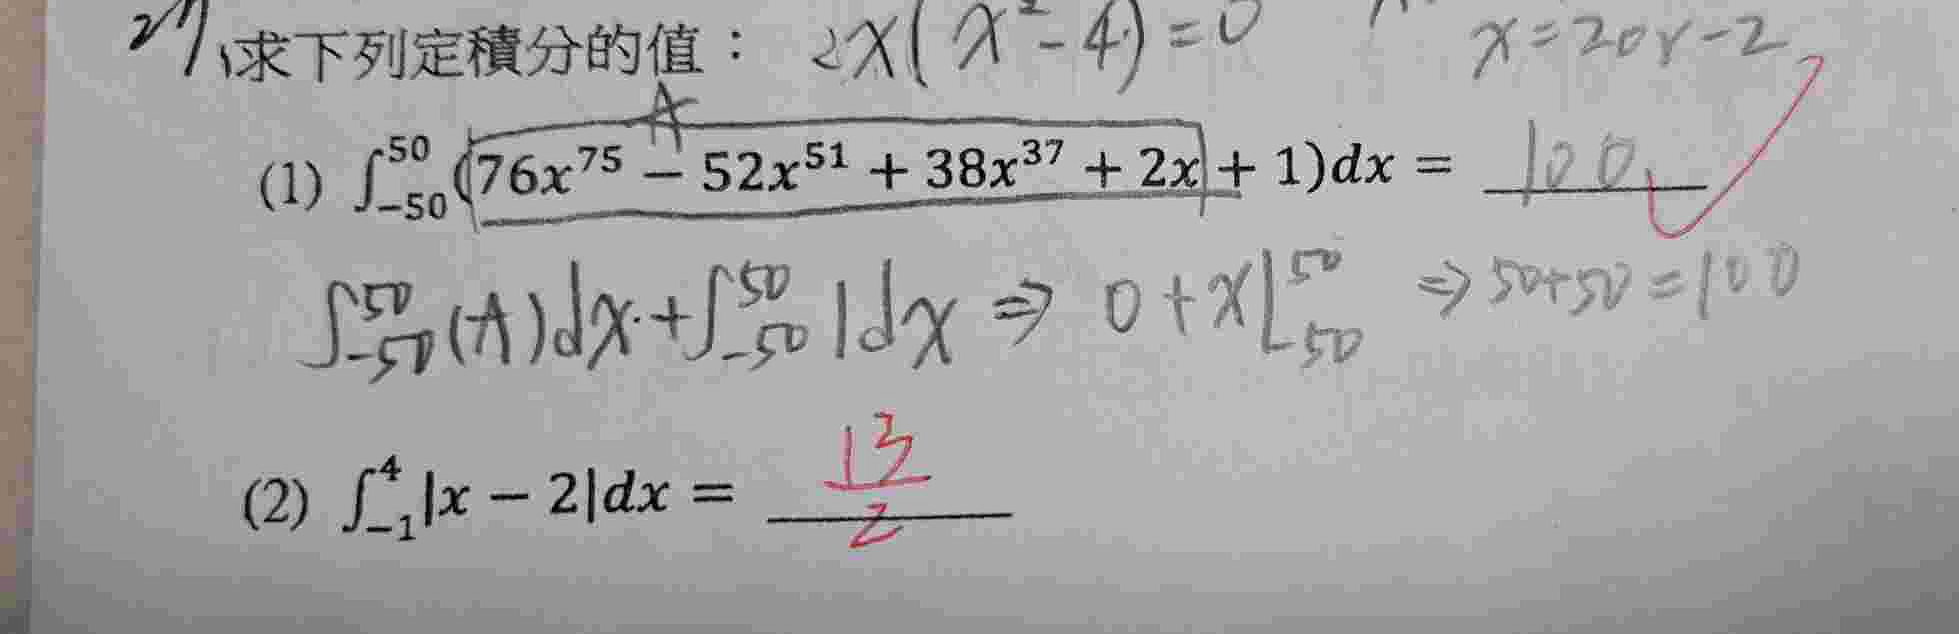 27、求下列定積分的值： 2x(x²-4)=0 x=2or-2
A
(1) ∫₋₅₀⁵⁰(76x⁷⁵ − 52x⁵¹ + 38x³⁷ + 2x + 1)dx = 100
∫₋₅₀⁵⁰(A)dx+∫₋₅₀⁵⁰1dx ⇒ 0+x|₋₅₀⁵⁰ ⇒ 50+50=100
(2) ∫₋₁⁴|x − 2|dx = 13/2